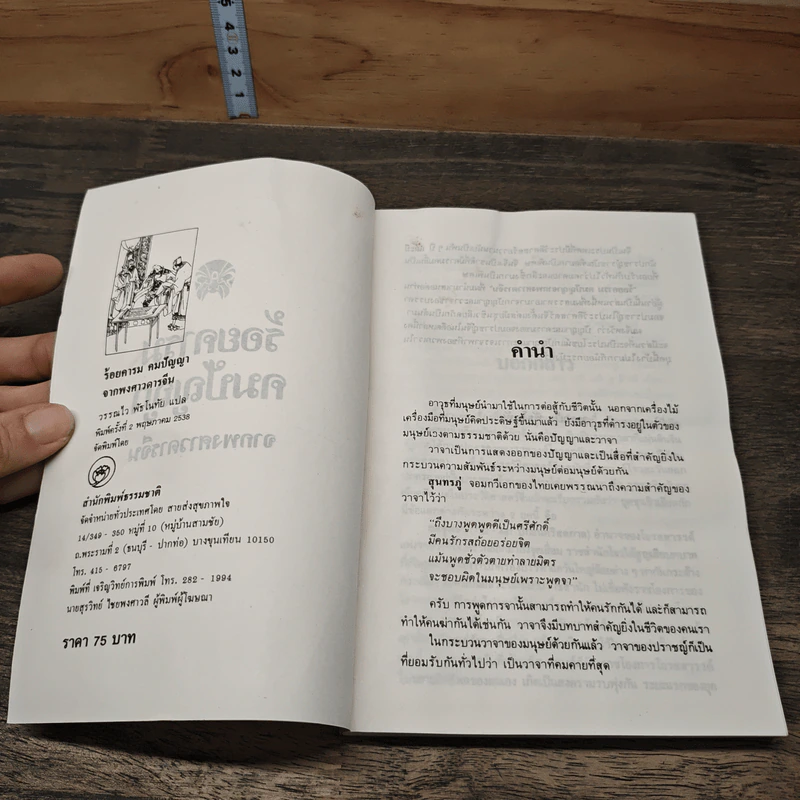 5
4
3
2
1
ร้อยคารม คมปัญญา
จากพงศาวดารจีน
วรรณไว พัธโนทัย แปล
พิมพ์ครั้งที่ 2 พฤษภาคม 2538
จัดพิมพ์โดย
สำนักพิมพ์ธรรมชาติ
จัดจำหน่ายทั่วประเทศโดย สายส่งสุขภาพใจ
14/349 - 350 หมู่ที่ 10 (หมู่บ้านสามชัย)
ถ.พระรามที่ 2 (ธนบุรี - ปากท่อ) บางขุนเทียน 10150
โทร. 415 - 6797
พิมพ์ที่ เจริญวิทย์การพิมพ์ โทร. 282 - 1994
นายสุรวิทย์ ไชยพงศาวลี ผู้พิมพ์ผู้โฆษณา
ราคา 75 บาท
คำนำ
อาวุธที่มนุษย์นำมาใช้ในการต่อสู้กับชีวิตนั้น นอกจากเครื่องไม้
เครื่องมือที่มนุษย์คิดประดิษฐ์ขึ้นมาแล้ว ยังมีอาวุธที่ดำรงอยู่ในตัวของ
มนุษย์เองตามธรรมชาติด้วย นั่นคือปัญญาและวาจา
วาจาเป็นการแสดงออกของปัญญาและเป็นสื่อที่สำคัญยิ่งใน
กระบวนความสัมพันธ์ระหว่างมนุษย์ต่อมนุษย์ด้วยกัน
สุนทรภู่ จอมกวีเอกของไทยเคยพรรณนาถึงความสำคัญของ
วาจาไว้ว่า
"ถึงบางพูดพูดดีเป็นศรีศักดิ์
มีคนรักรสถ้อยอร่อยจิต
แม้นพูดชั่วตัวตายทำลายมิตร
จะชอบผิดในมนุษย์เพราะพูดจา"
ครับ การพูดการจานั้นสามารถทำให้คนรักกันได้ และก็สามารถ
ทำให้คนฆ่ากันได้เช่นกัน วาจาจึงมีบทบาทสำคัญยิ่งในชีวิตของคนเรา
ในกระบวนวาจาของมนุษย์ด้วยกันแล้ว วาจาของปราชญ์ก็เป็น
ที่ยอมรับกันทั่วไปว่า เป็นวาจาที่คมคายที่สุด